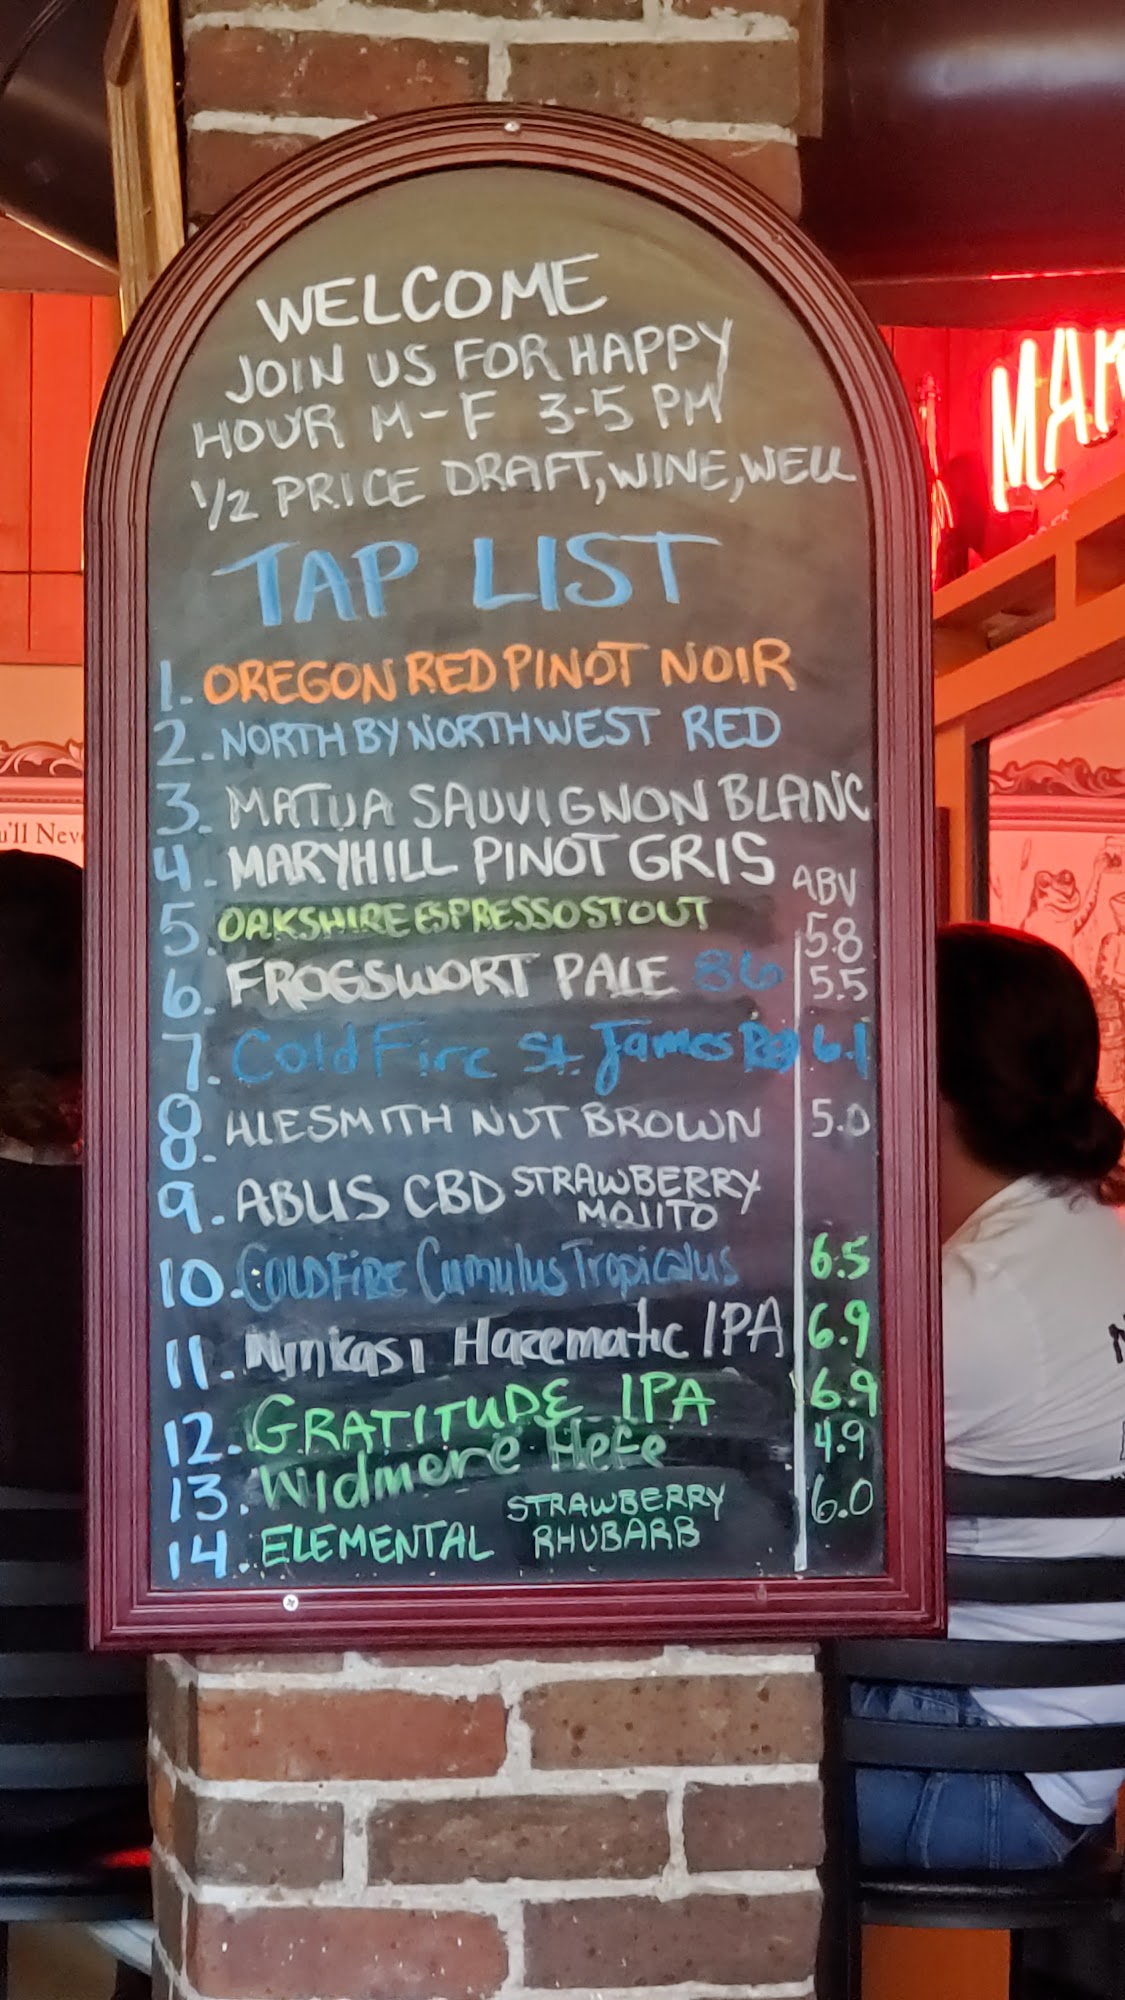 WELCOME
JOIN US FOR HAPPY
HOUR M-F 3-5 PM
1/2 PRICE DRAFT, WINE, WELL
TAP LIST
1. OREGON RED PINOT NOIR
2. NORTH BY NORTHWEST RED
3. MATUA SAUVIGNON BLANC
4. MARYHILL PINOT GRIS
ABV
5. OAKSHIRE ESPRESSO STOUT 5.8
6. FROGSWORT PALE 86 5.5
7. Cold Fire St. James 6.1
8. ALESMITH NUT BROWN 5.0
9. ABUS CBD STRAWBERRY
MOJITO
10. COLDFIRE Cumulus Tropicalus 6.5
11. Ninkasi Hazematic IPA 6.9
12. GRATITUDE IPA 6.9
13. Widmere Hefe 4.9
14. ELEMENTAL STRAWBERRY 6.0
RHUBARB
MAR
u'll Neve